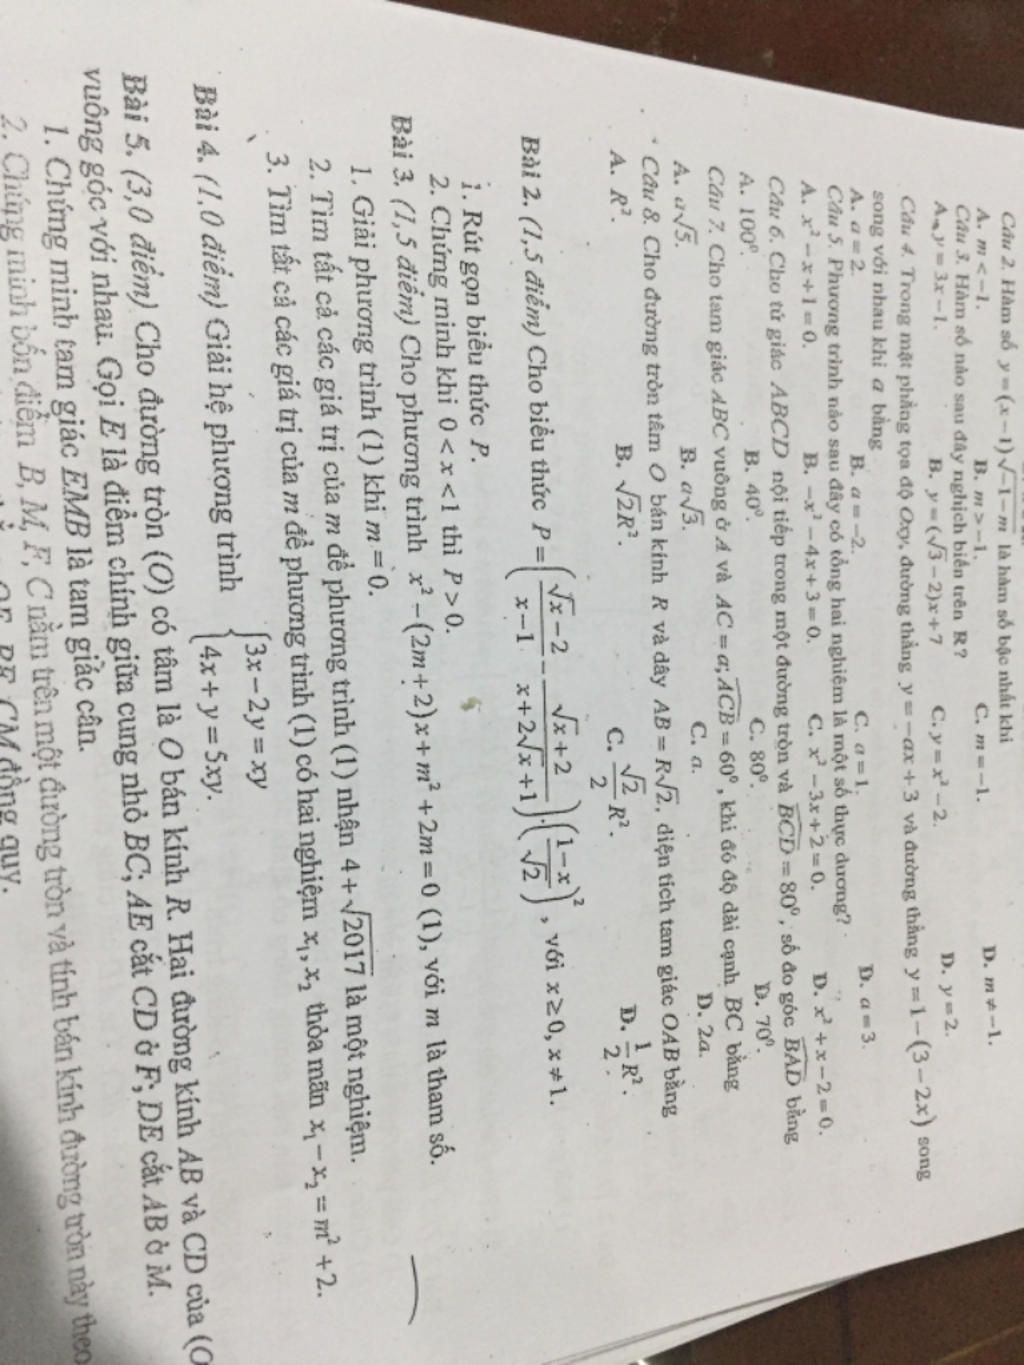 Câu 2. Hàm số y = (x − 1)√(−1 − m) là hàm số bậc nhất khi
A. m < −1. B. m > −1. C. m = −1. D. m ≠ −1.
Câu 3. Hàm số nào sau đây nghịch biến trên R?
A. y = 3x − 1. B. y = (√3 − 2)x + 7 C. y = x² − 2. D. y = 2.
Câu 4. Trong mặt phẳng tọa độ Oxy, đường thẳng y = −ax + 3 và đường thẳng y = 1 − (3 − 2x) song
song với nhau khi a bằng
A. a = 2. B. a = −2. C. a = 1. D. a = 3.
Câu 5. Phương trình nào sau đây có tổng hai nghiệm là một số thực dương?
A. x² − x + 1 = 0. B. −x² − 4x + 3 = 0. C. x² − 3x + 2 = 0. D. x² + x − 2 = 0.
Câu 6. Cho tứ giác ABCD nội tiếp trong một đường tròn và BCD = 80⁰, số đo góc BAD bằng
A. 100⁰. B. 40⁰. C. 80⁰. D. 70⁰.
Câu 7. Cho tam giác ABC vuông ở A và AC = a; ACB = 60⁰, khi đó độ dài cạnh BC bằng
A. a√5. B. a√3. C. a. D. 2a.
Câu 8. Cho đường tròn tâm O bán kính R và dây AB = R√2, diện tích tam giác OAB bằng
A. R². B. √2R². C. √2/2 R². D. 1/2 R².
Bài 2. (1,5 điểm) Cho biểu thức P = ((√x − 2)/(x − 1) − (√x + 2)/(x + 2√x + 1)).((1 − x)/√2)², với x ≥ 0, x ≠ 1.
1. Rút gọn biểu thức P.
2. Chứng minh khi 0 < x < 1 thì P > 0.
Bài 3. (1,5 điểm) Cho phương trình x² − (2m + 2)x + m² + 2m = 0 (1), với m là tham số.
1. Giải phương trình (1) khi m = 0.
2. Tìm tất cả các giá trị của m để phương trình (1) nhận 4 + √2017 là một nghiệm.
3. Tìm tất cả các giá trị của m để phương trình (1) có hai nghiệm x₁, x₂ thỏa mãn x₁ − x₂ = m² + 2.
Bài 4. (1.0 điểm) Giải hệ phương trình { 3x − 2y = xy
4x + y = 5xy.
Bài 5. (3,0 điểm) Cho đường tròn (O) có tâm là O bán kính R. Hai đường kính AB và CD của (O
vuông góc với nhau. Gọi E là điểm chính giữa cung nhỏ BC; AE cắt CD ở F; DE cắt AB ở M.
1. Chứng minh tam giác EMB là tam giác cân.
2. Chứng minh bốn điểm B, M, F, C nằm trên một đường tròn và tính bán kính đường tròn này theo
CM đồng quy.